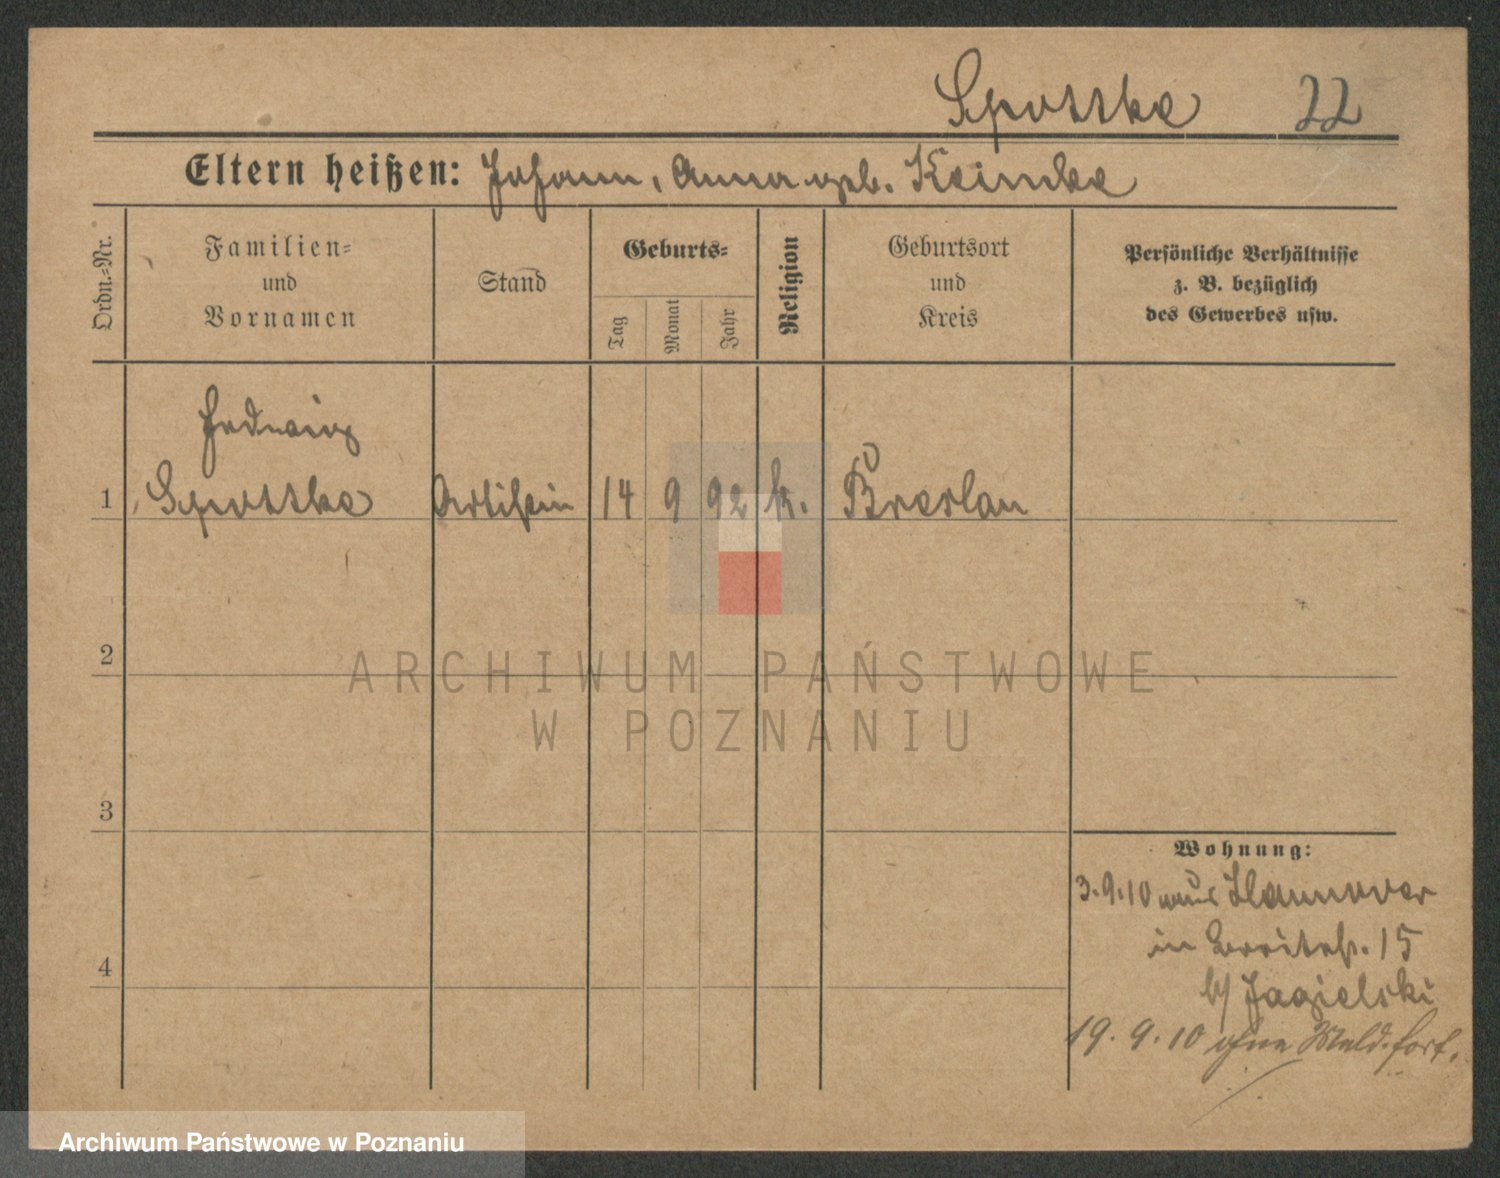 Spottke 22
Eltern heißen: Johann, Anna geb. Keimke
Ordn.-Nr.
Familien-
und
Vornamen
Stand
Geburts-
Tag
Monat
Jahr
Religion
Geburtsort
und
Kreis
Persönliche Verhältnisse
z. B. bezüglich
des Gewerbes usw.
Hedwig
1 Spottke Artistin 14 9 92 k. Breslau
2
3
4
Wohnung:
3.9.10 aus Hannover
in Breitestr. 15
b/ Jagielski
19.9.10 ohne Meld. fort.
ARCHIWUM PAŃSTWOWE
W POZNANIU
Archiwum Państwowe w Poznaniu